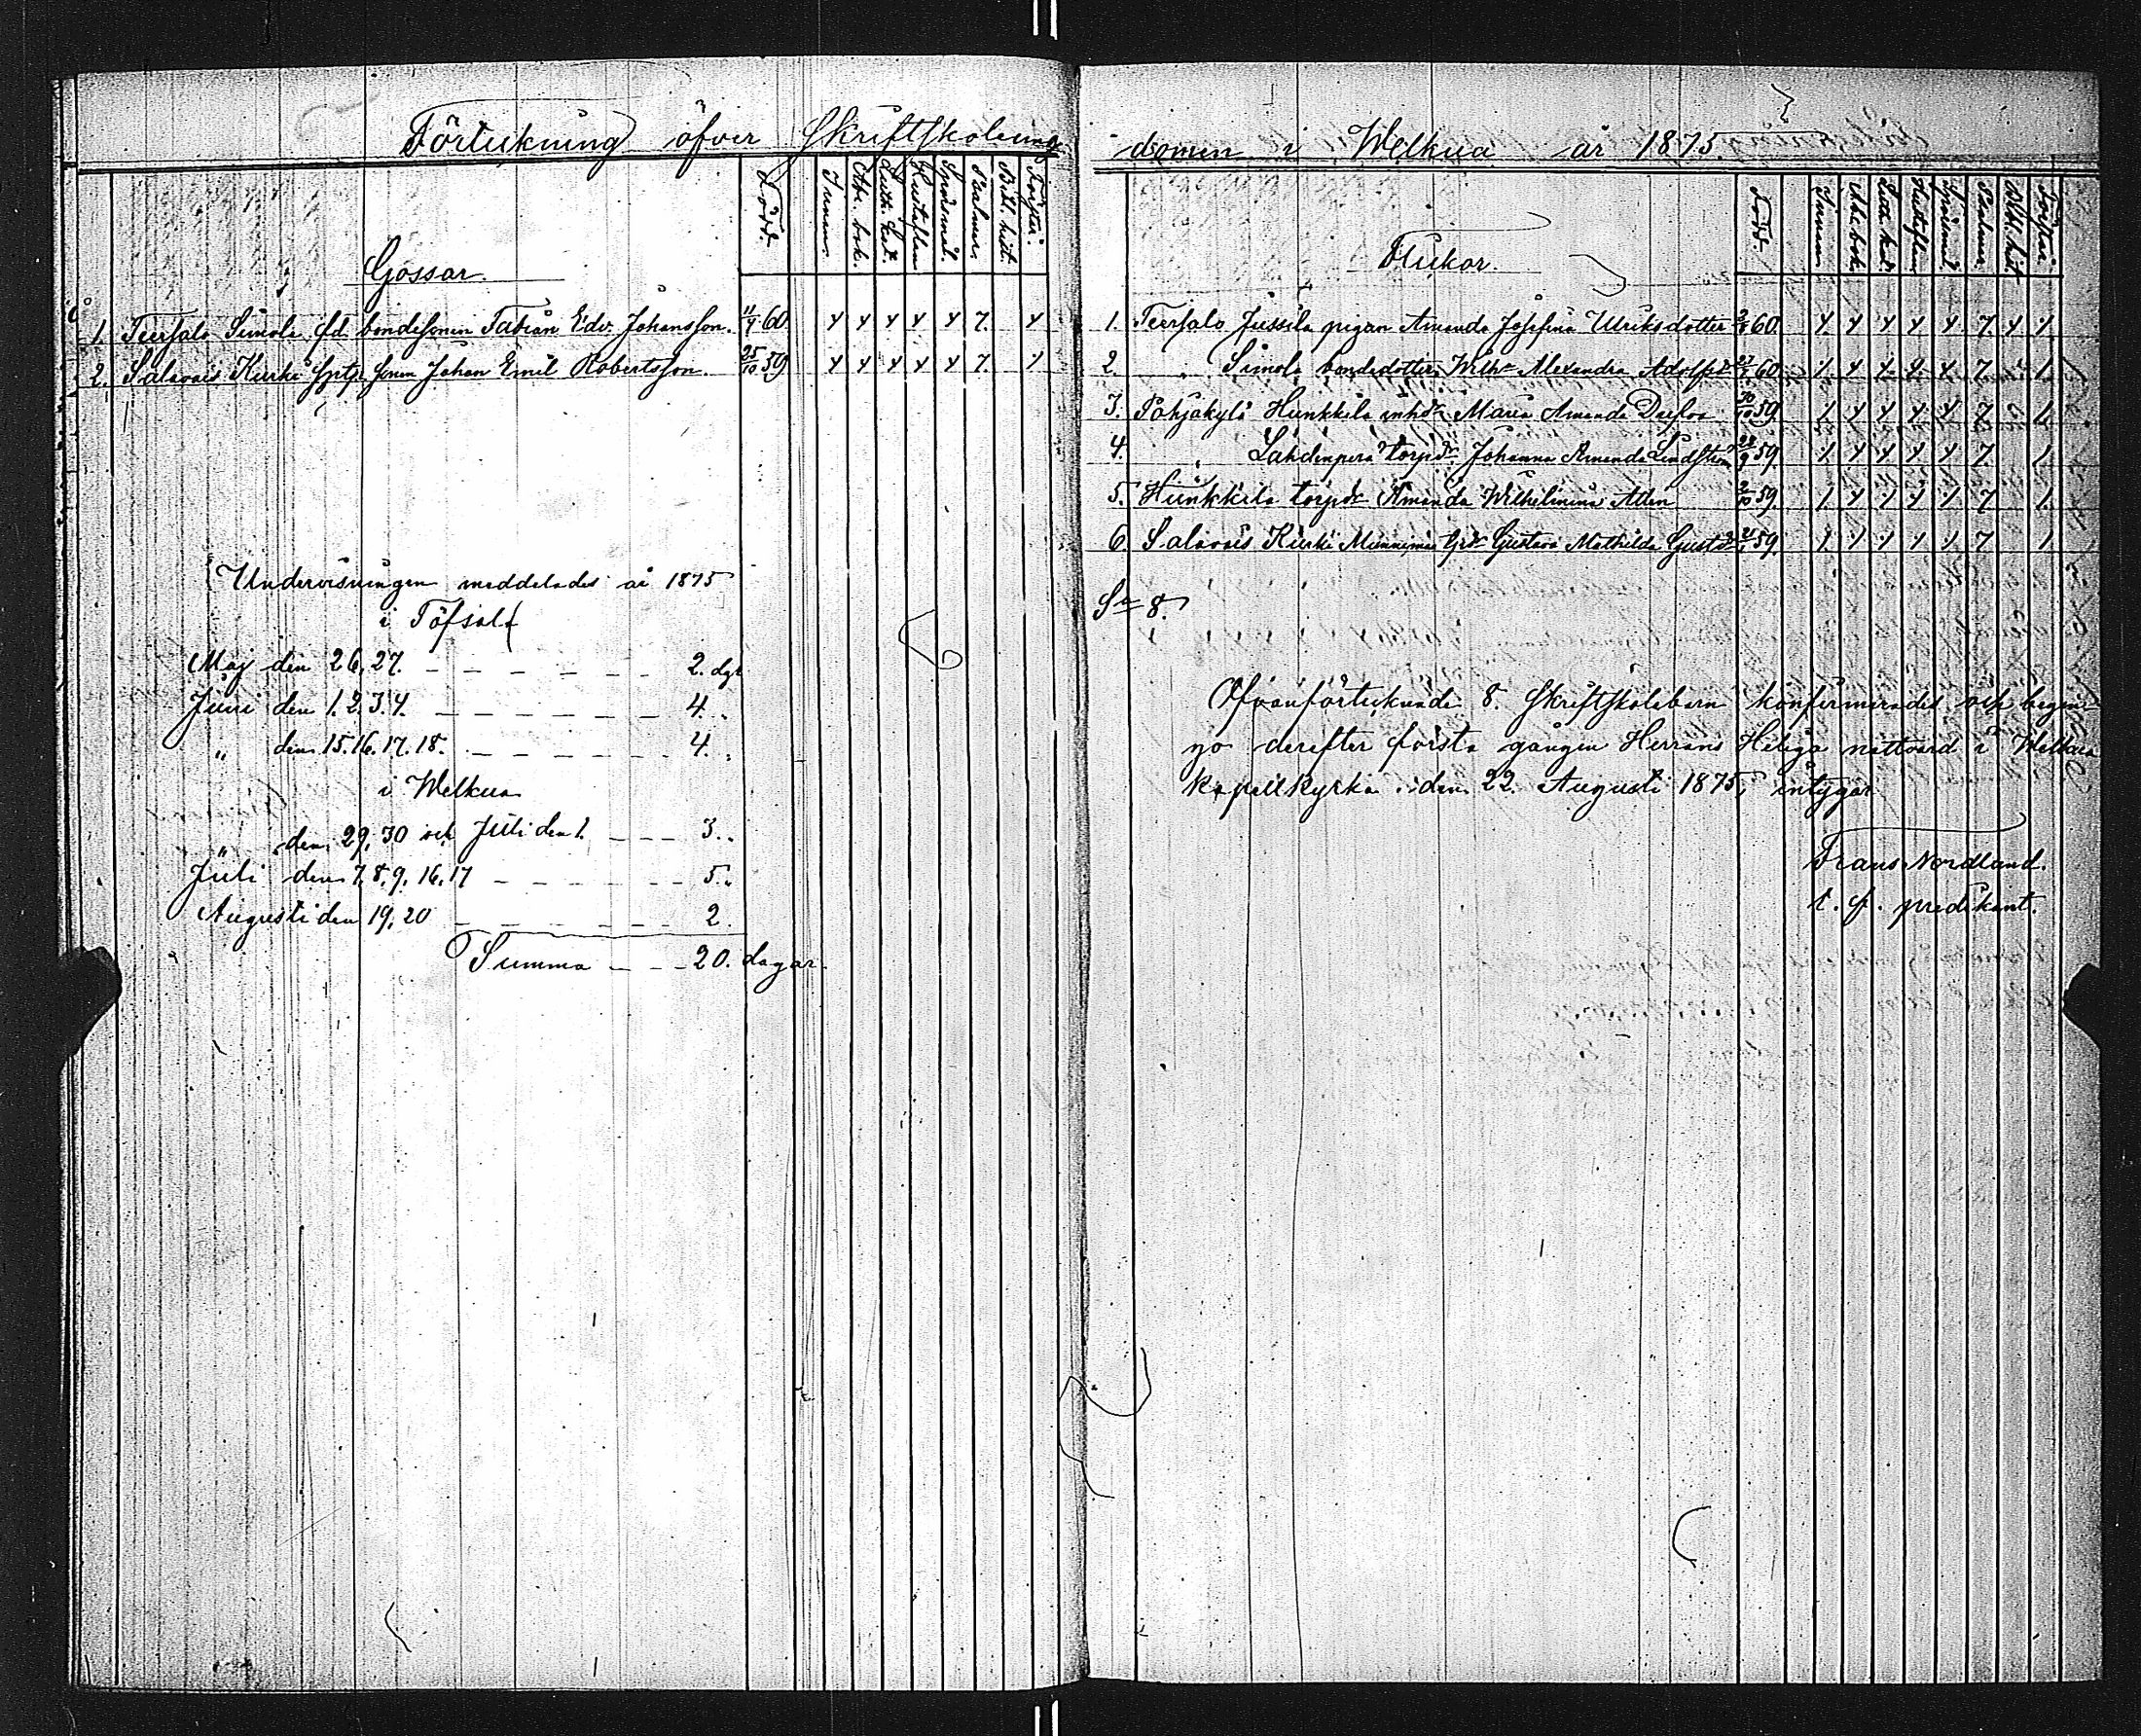 Förteckning öfver Skriftskoleung
domen i Welkua år 1875.
Född. Innan. Abc. bok. Luth. kat. Hustaflan Spörsmål. Psalmer. Bibl. hist. Förstår.
Gossar.
1. Teersalo Simola fd. bondesonen Fabian Edv. Johansson. 11/4 60
2. Salavais Kurki sonen Johan Emil Robertsson. 25/10 59
Undervisningen meddelades år 1875
i Töfsala
Maj den 26, 27. 2. dgr
Juni den 1. 2. 3. 4. 4. "
" den 15. 16. 17. 18. 4. "
i Welkua
" den 29, 30 och Juli den 1. 3. "
Juli den 7, 8, 9, 16, 17 5. "
Augusti den 19, 20 2.
Summa 20. dagar
Född. Innan Abc. bok Luth. kat. Hustaflan Spörsmål Psalmer Bibl. hist Förstår
Flickor.
1. Teersalo Jussila pigan Amanda Josefina Ulriksdotter 60.
2. " Simola bondedotter Wilh. Alexandra Adolfsdr 60.
3. Pohjakylä Hunkkila inhdr Maria Amanda 30/10 59
4. " Lahdenperä torpdr Johanna Amanda Lindström 59.
5. Hunkkila torpdr Amanda Wilhelmina 2/10 59.
6. Salavais Kurki Gustava Mathilda Gustdr 59.
Sa 8.
Ofvanförtecknade 8. Skriftskolebarn konfirmerades och begin
go derefter första gången Herrans Heliga nattvard i Welkua
kapellkyrka den 22. Augusti 1875, intygar
Frans Nordlund.
t. f. predikant.